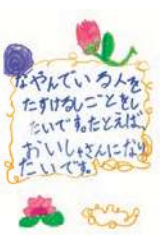 なやんでいる人を
たすけるしごとをし
たいです。たとえば、
おいしゃさんになり
たいです。